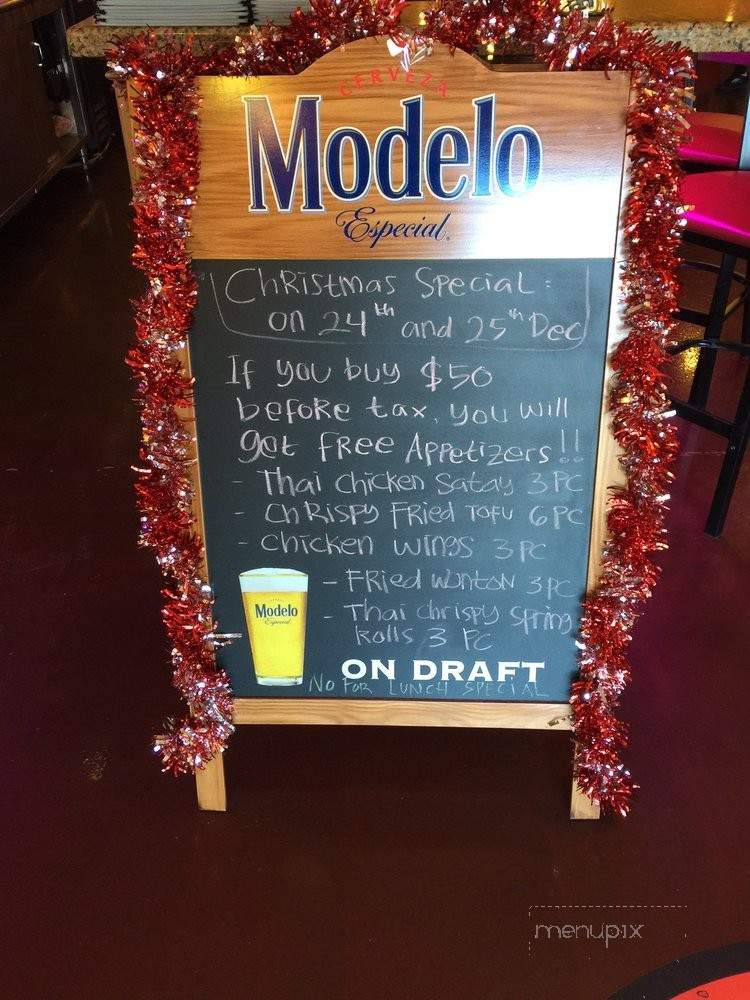 CERVEZA
Modelo
Especial
Christmas Special:
on 24th and 25th Dec
If you buy $50
before tax, you will
get free Appetizers!!
- Thai Chicken Satay 3 PC
- Chrispy Fried Tofu 6 PC
- Chicken wings 3 PC
- Fried wonton 3 PC
- Thai chrispy spring
Rolls 3 PC
Modelo
Especial
ON DRAFT
No For LUNCH SPECIAL
menupix